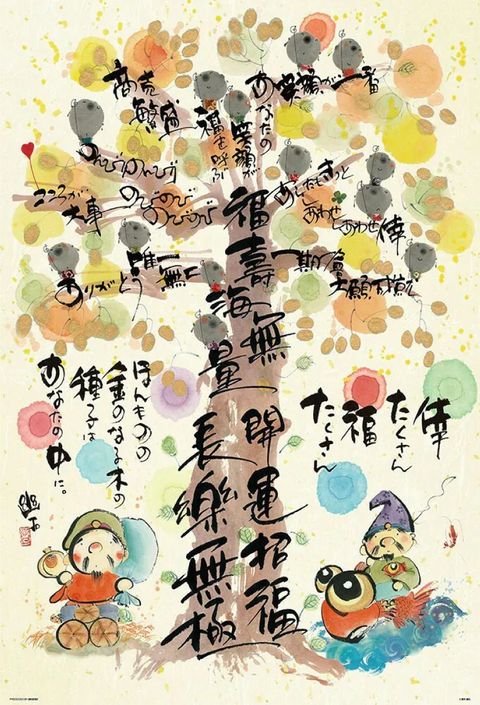 商売
繁盛
笑顔が
福を呼ぶ
あなたの
笑顔が一番
のんびりのんびり
のびのびのびのび
こころが
大事
あしたもきっと
しあわせ
しあわせ
倖
唯一無二
ありがとう
大願成就
福壽海無量
長樂無極
開運招福
倖
たくさん
福
たくさん
ほんものの
金のなる木の
種子は
あなたの中に。